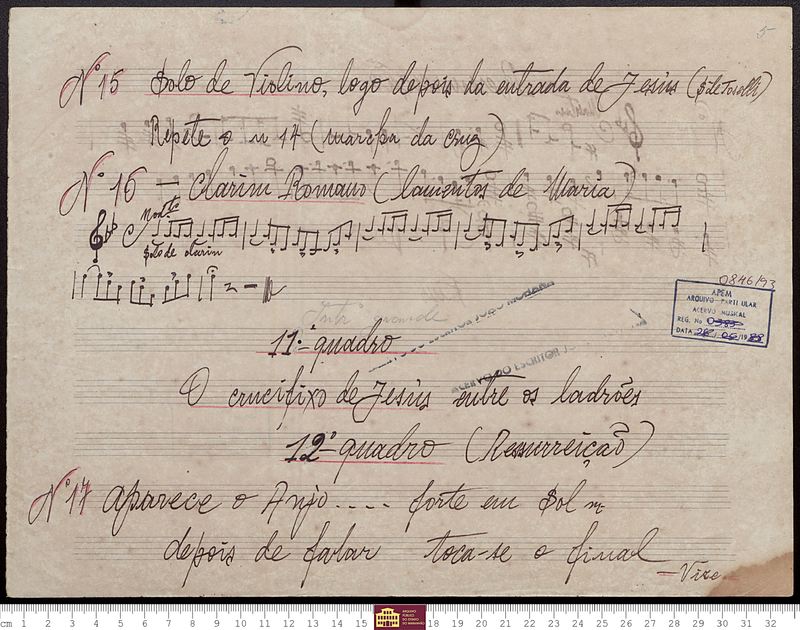 5
Nº 15 Solo de Violino, logo depois da entrada de Jesus (
Repete o n 14 (marcha da cruz)
Nº 16 — Clarim Romano (lamentos de Maria)
Solo de clarim
0846/93
APEM
ARQUIVO PARTICULAR
ACERVO MUSICAL
REG. No 0385
DATA 26/05/1988
11º quadro
ACERVO DO ESCRITOR
O crucifixo de Jesus entre os ladrões
12º quadro (Ressurreição)
Nº 17 Aparece o Anjo.... forte em Sol m
depois de falar toca-se o final
cm 1 2 3 4 5 6 7 8 9 10 11 12 13 14 15 18 19 20 21 22 23 24 25 26 27 28 29 30 31 32
ARQUIVO PÚBLICO DO ESTADO DO MARANHÃO